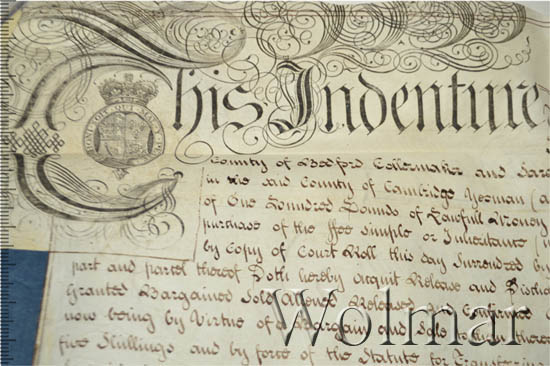 This Indenture
HONI SOIT QUI MAL Y PENSE
County of Bedford Collarmaker and Sara
in the said County of Cambridge Yeoman (a
of One Hundred Pounds of Lawful Money
purchase of the ffee simple or Inheritance
by Copy of Court Roll this day Surrendered by
part and parcel thereof Doth hereby Acquit Release and Disch
Granted Bargained Sold Aliened Released and Confirmed
now being by Virtue of a Bargain and Sale to him there
five Shillings and by force of the Statute for Transferrin
Wolmar